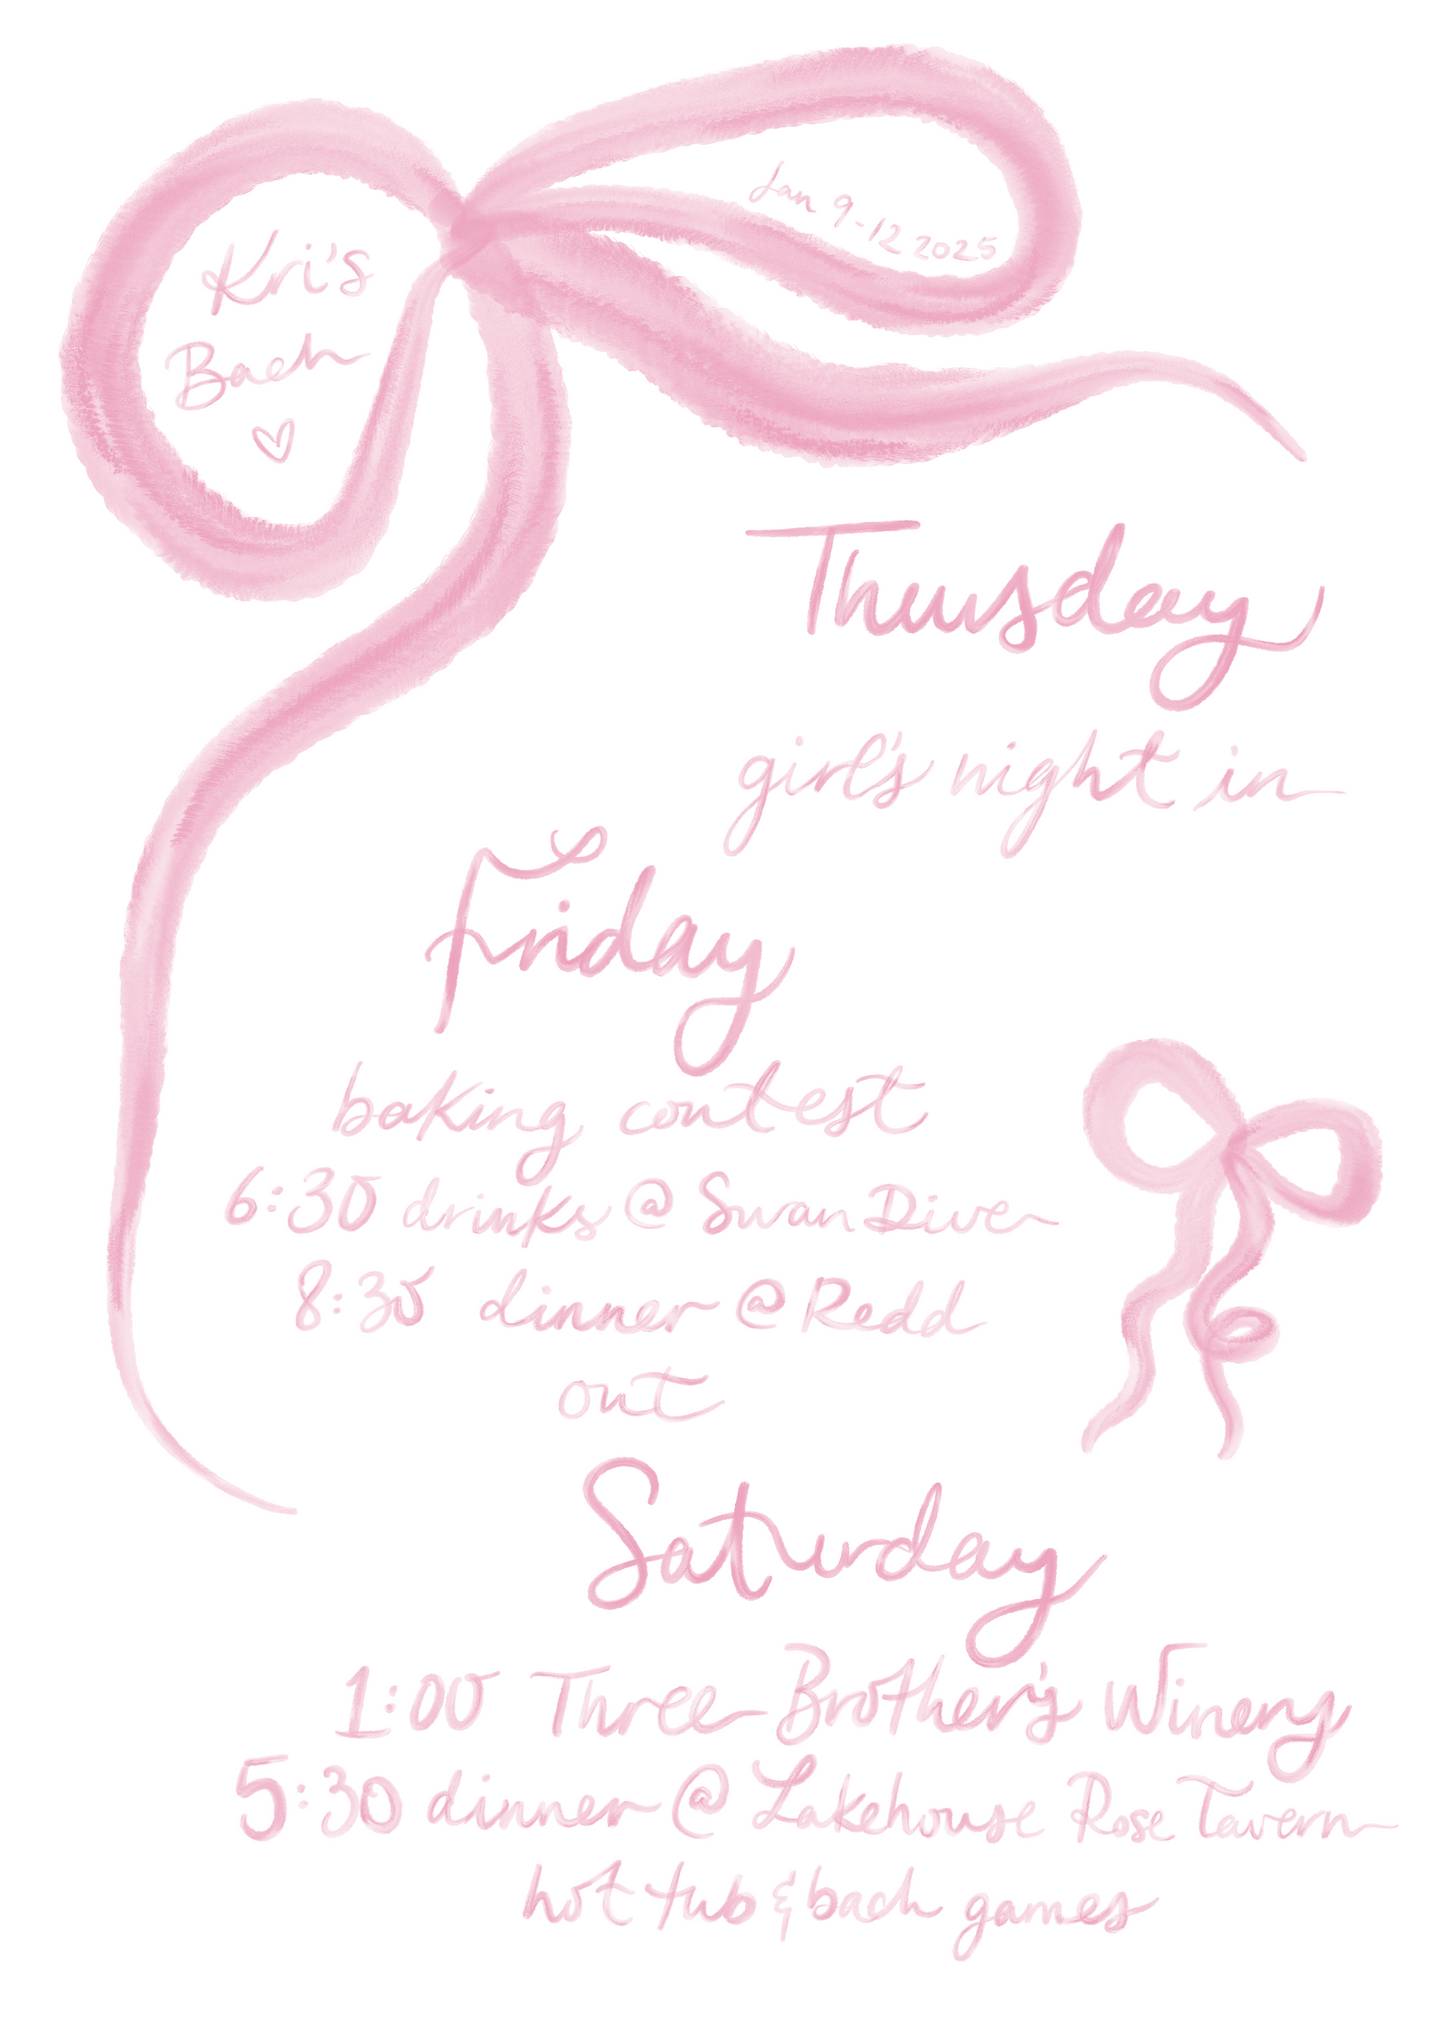 Kri's
Bach
Jan 9-12 2025
Thursday
girl's night in
Friday
baking contest
6:30 drinks @ Swan Dive
8:30 dinner @ Redd
out
Saturday
1:00 Three Brother's Winery
5:30 dinner @ Lakehouse Rose Tavern
hot tub & bach games